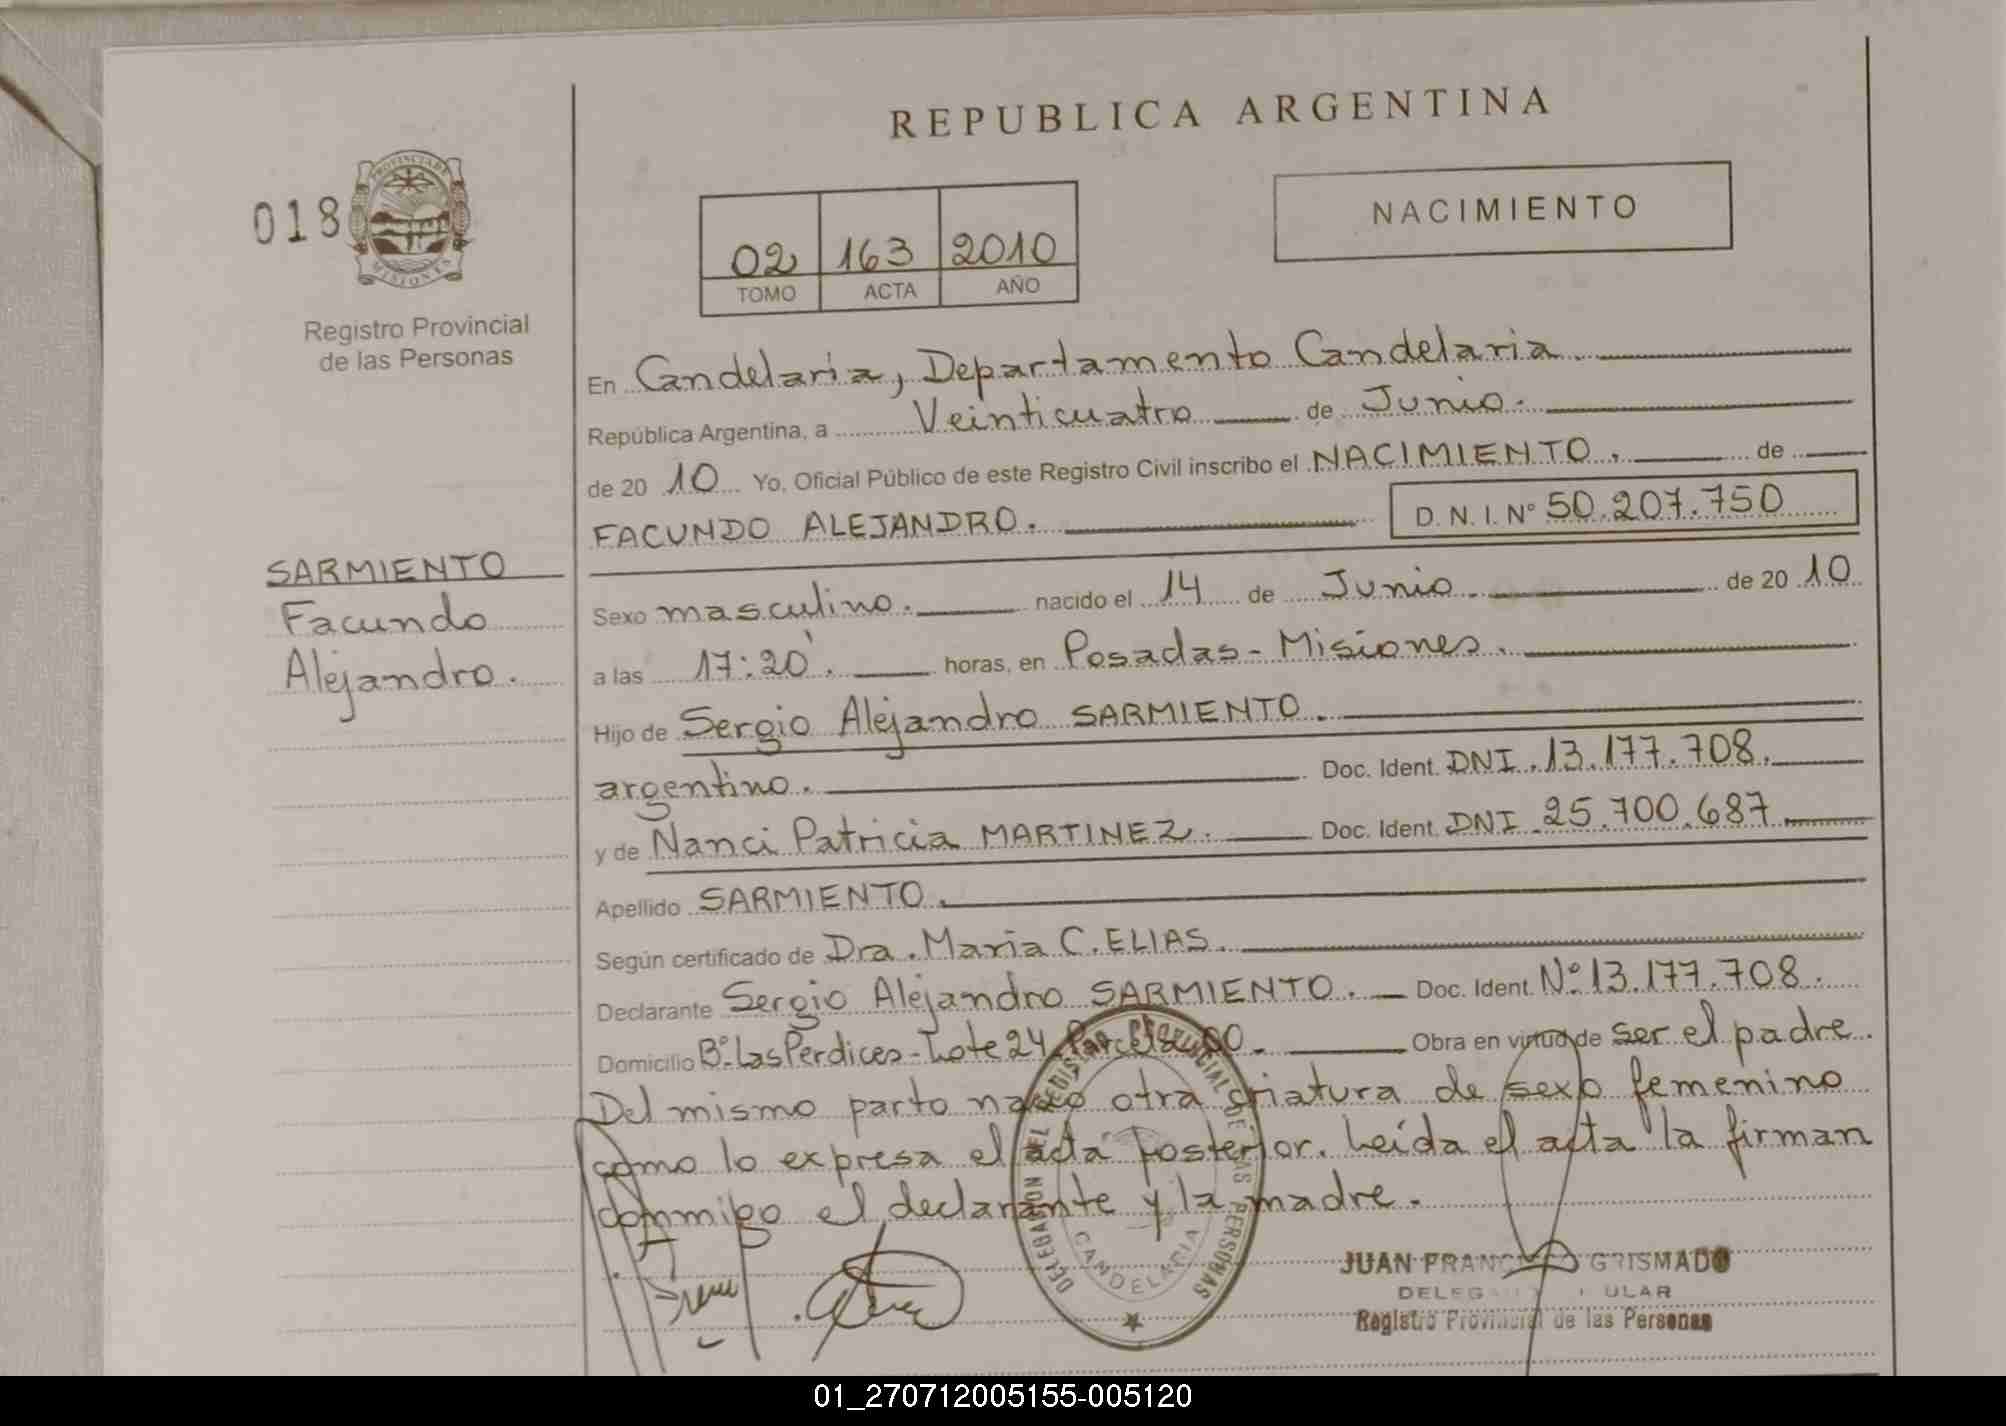 REPUBLICA ARGENTINA
018
PROVINCIA DE
MISIONES
Registro Provincial
de las Personas
02 163 2010
TOMO ACTA AÑO
NACIMIENTO
En Candelaria, Departamento Candelaria.
República Argentina, a Veinticuatro de Junio.
de 20 10 Yo, Oficial Público de este Registro Civil inscribo el NACIMIENTO. de
FACUNDO ALEJANDRO. D. N. I. N° 50.207.750
SARMIENTO
Facundo
Alejandro.
Sexo masculino. nacido el 14 de Junio de 20 10
a las 17:20'. horas, en Posadas - Misiones.
Hijo de Sergio Alejandro SARMIENTO.
argentino. Doc. Ident. DNI. 13.177.708.
y de Nanci Patricia MARTINEZ. Doc. Ident. DNI 25.700.687
Apellido SARMIENTO.
Según certificado de Dra. Maria C. ELIAS.
Declarante Sergio Alejandro SARMIENTO. Doc. Ident. N° 13.177.708.
Domicilio B° Las Perdices - Lote 24 Parcela 00. Obra en virtud de ser el padre.
Del mismo parto nacio otra criatura de sexo femenino
como lo expresa el acta posterior. Leída el acta la firman
conmigo el declarante y la madre.
DELEGACION DEL REGISTRO PROVINCIAL DE LAS PERSONAS
CANDELARIA
JUAN FRANCISCO GRISMADO
Registro Provincial de las Personas
01_270712005155-005120